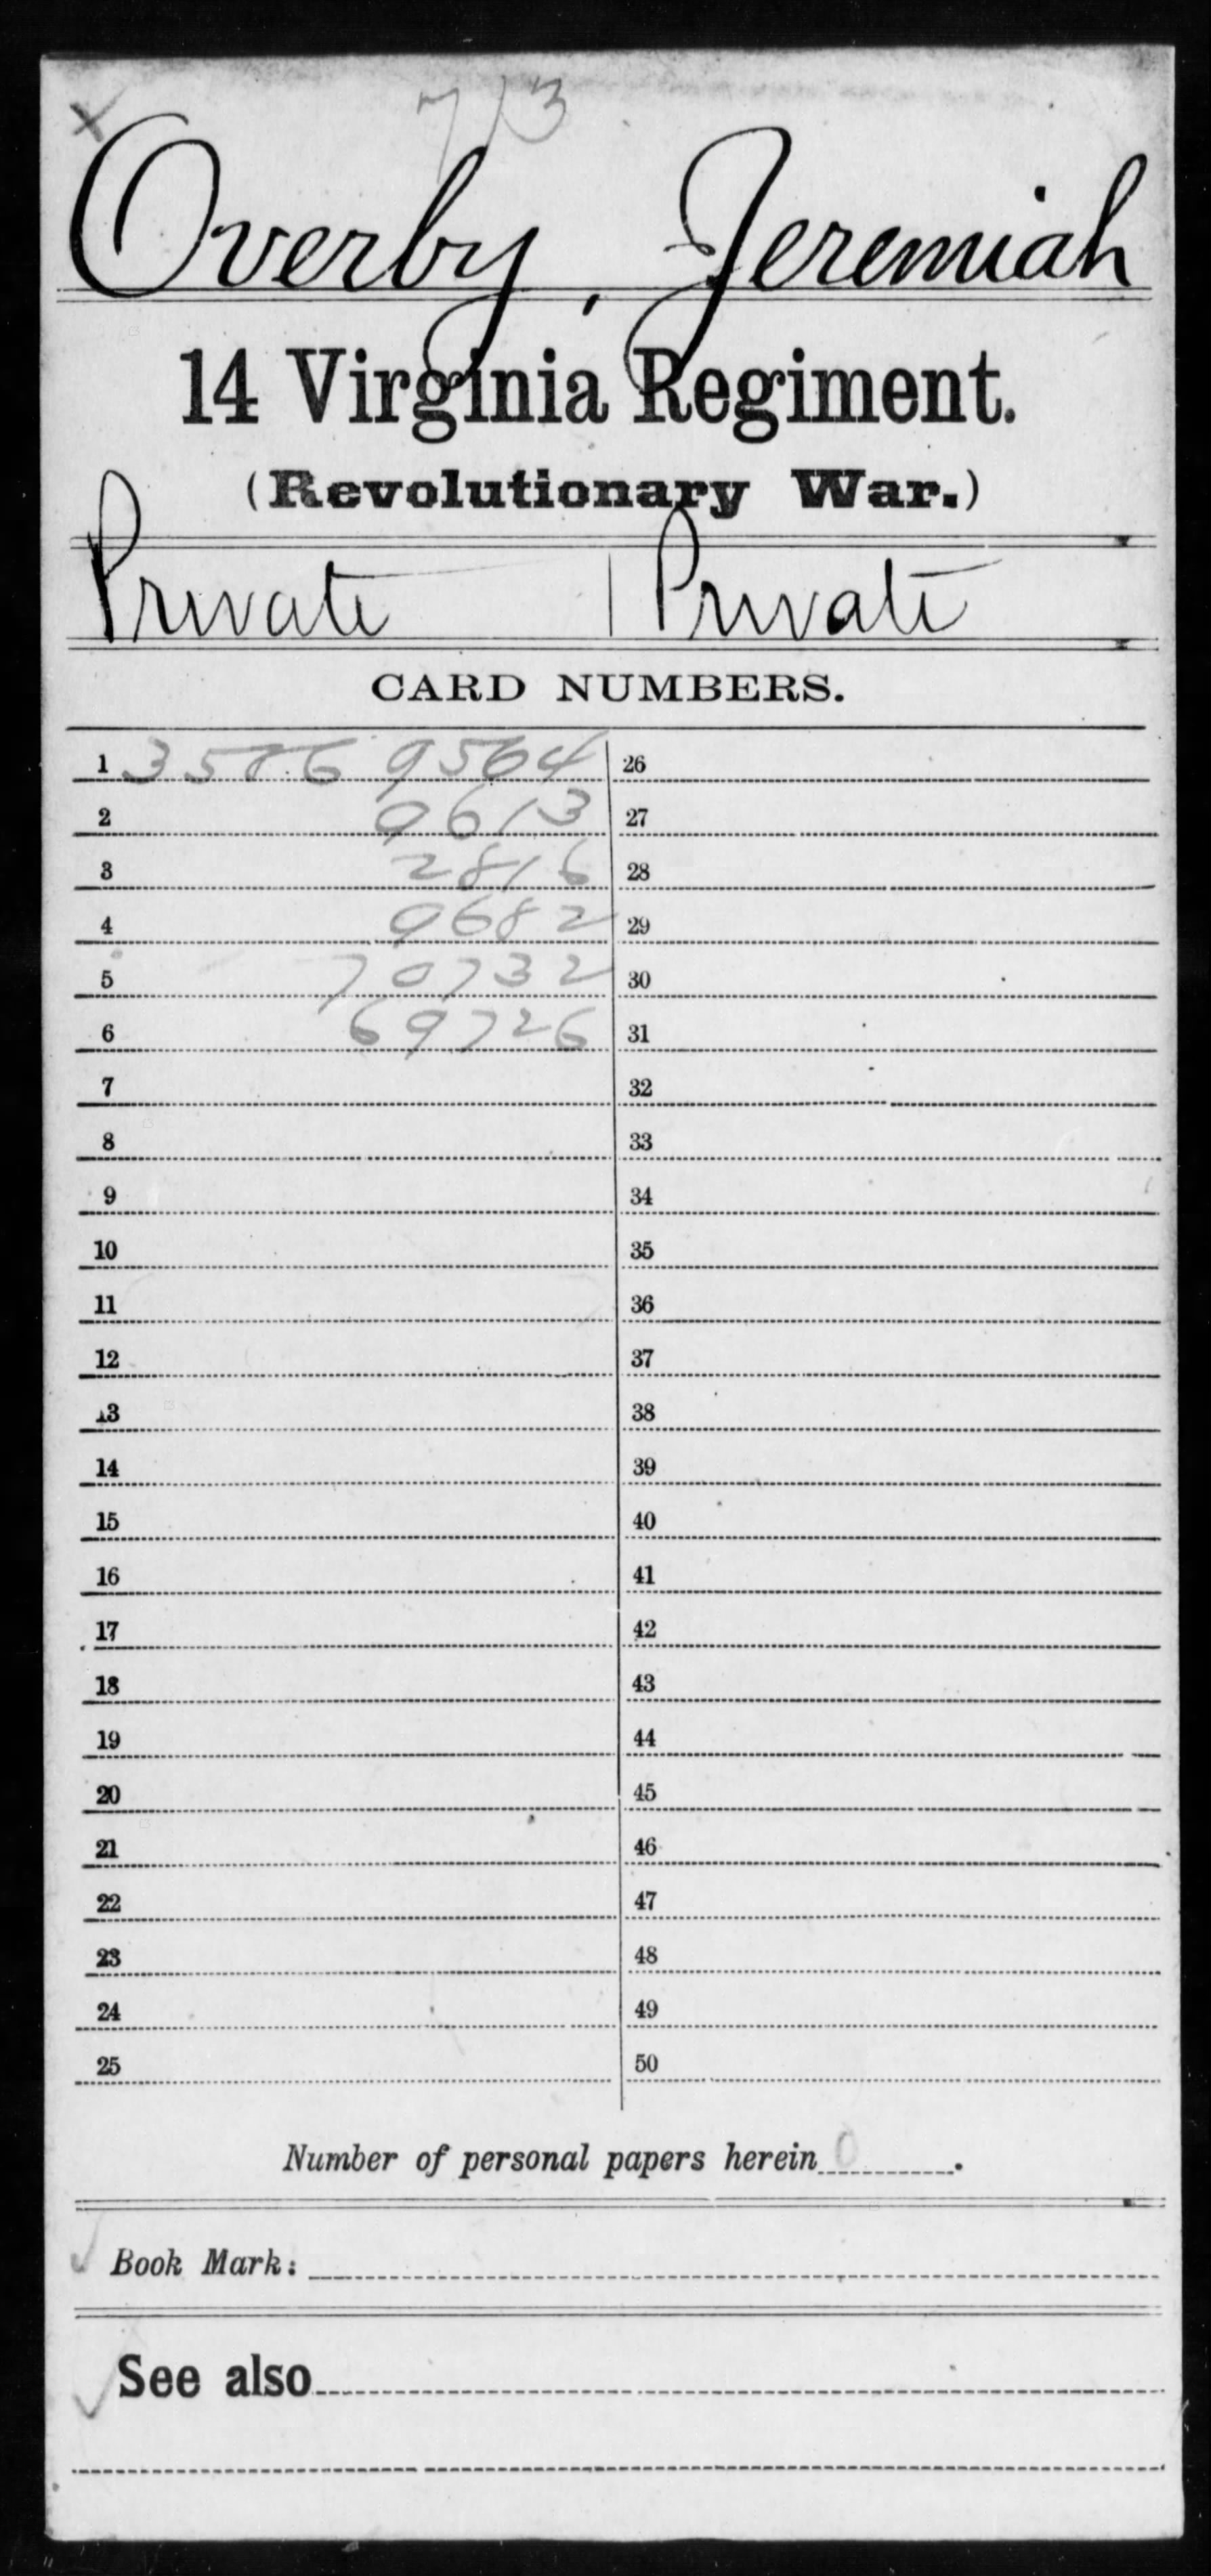 713
Overby, Jeremiah
14 Virginia Regiment.
(Revolutionary War.)
Private | Private
CARD NUMBERS.
1 3586 9564 26
2 9613 27
3 2816 28
4 9682 29
5 70732 30
6 69726 31
7 32
8 33
9 34
10 35
11 36
12 37
13 38
14 39
15 40
16 41
17 42
18 43
19 44
20 45
21 46
22 47
23 48
24 49
25 50
Number of personal papers herein 0.
Book Mark:
See also